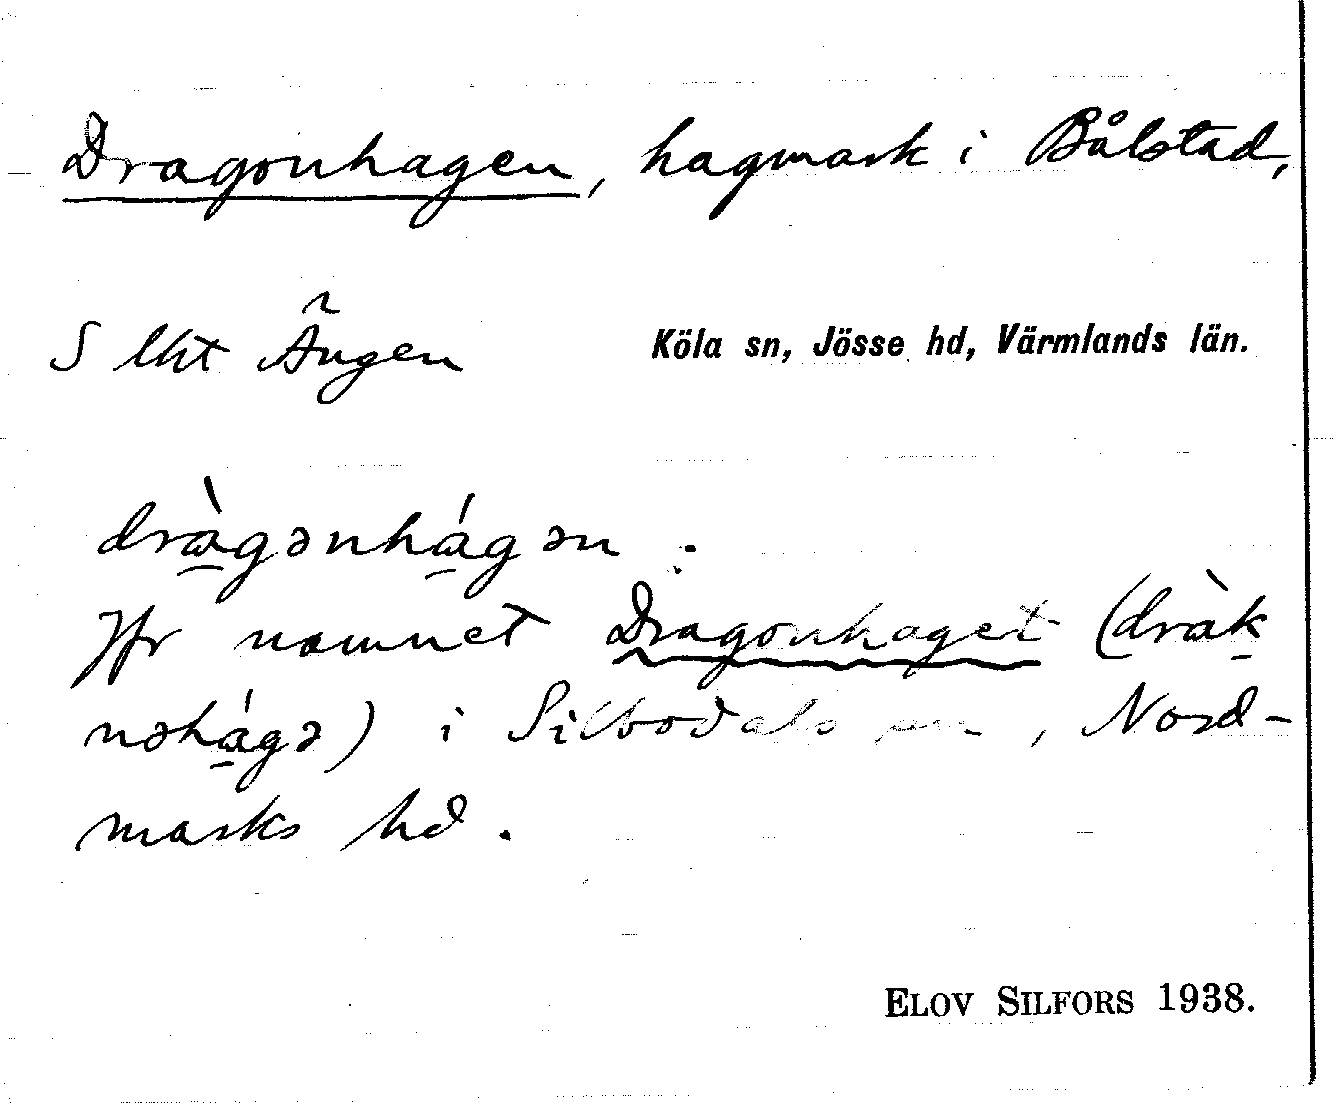 Dragonhagen, hagmark i Bålstad,
S lht Ängen
Köla sn, Jösse hd, Värmlands län.
dràgənhágən.
Jfr namnet Dragonhaget (dràk
nəhágə) i Silbodals sn, Nord-
marks hd.
ELOV SILFORS 1938.